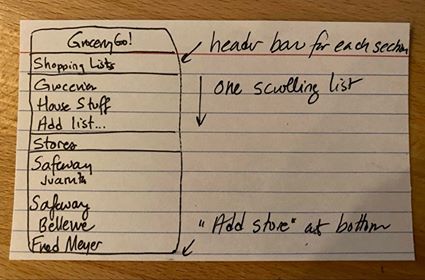 GroceryGo!
header bar for each section
Shopping Lists
Groceries
one scrolling list
House Stuff
Add list...
Stores
Safeway
Juanita
Safeway
Bellevue
"Add store" at bottom
Fred Meyer